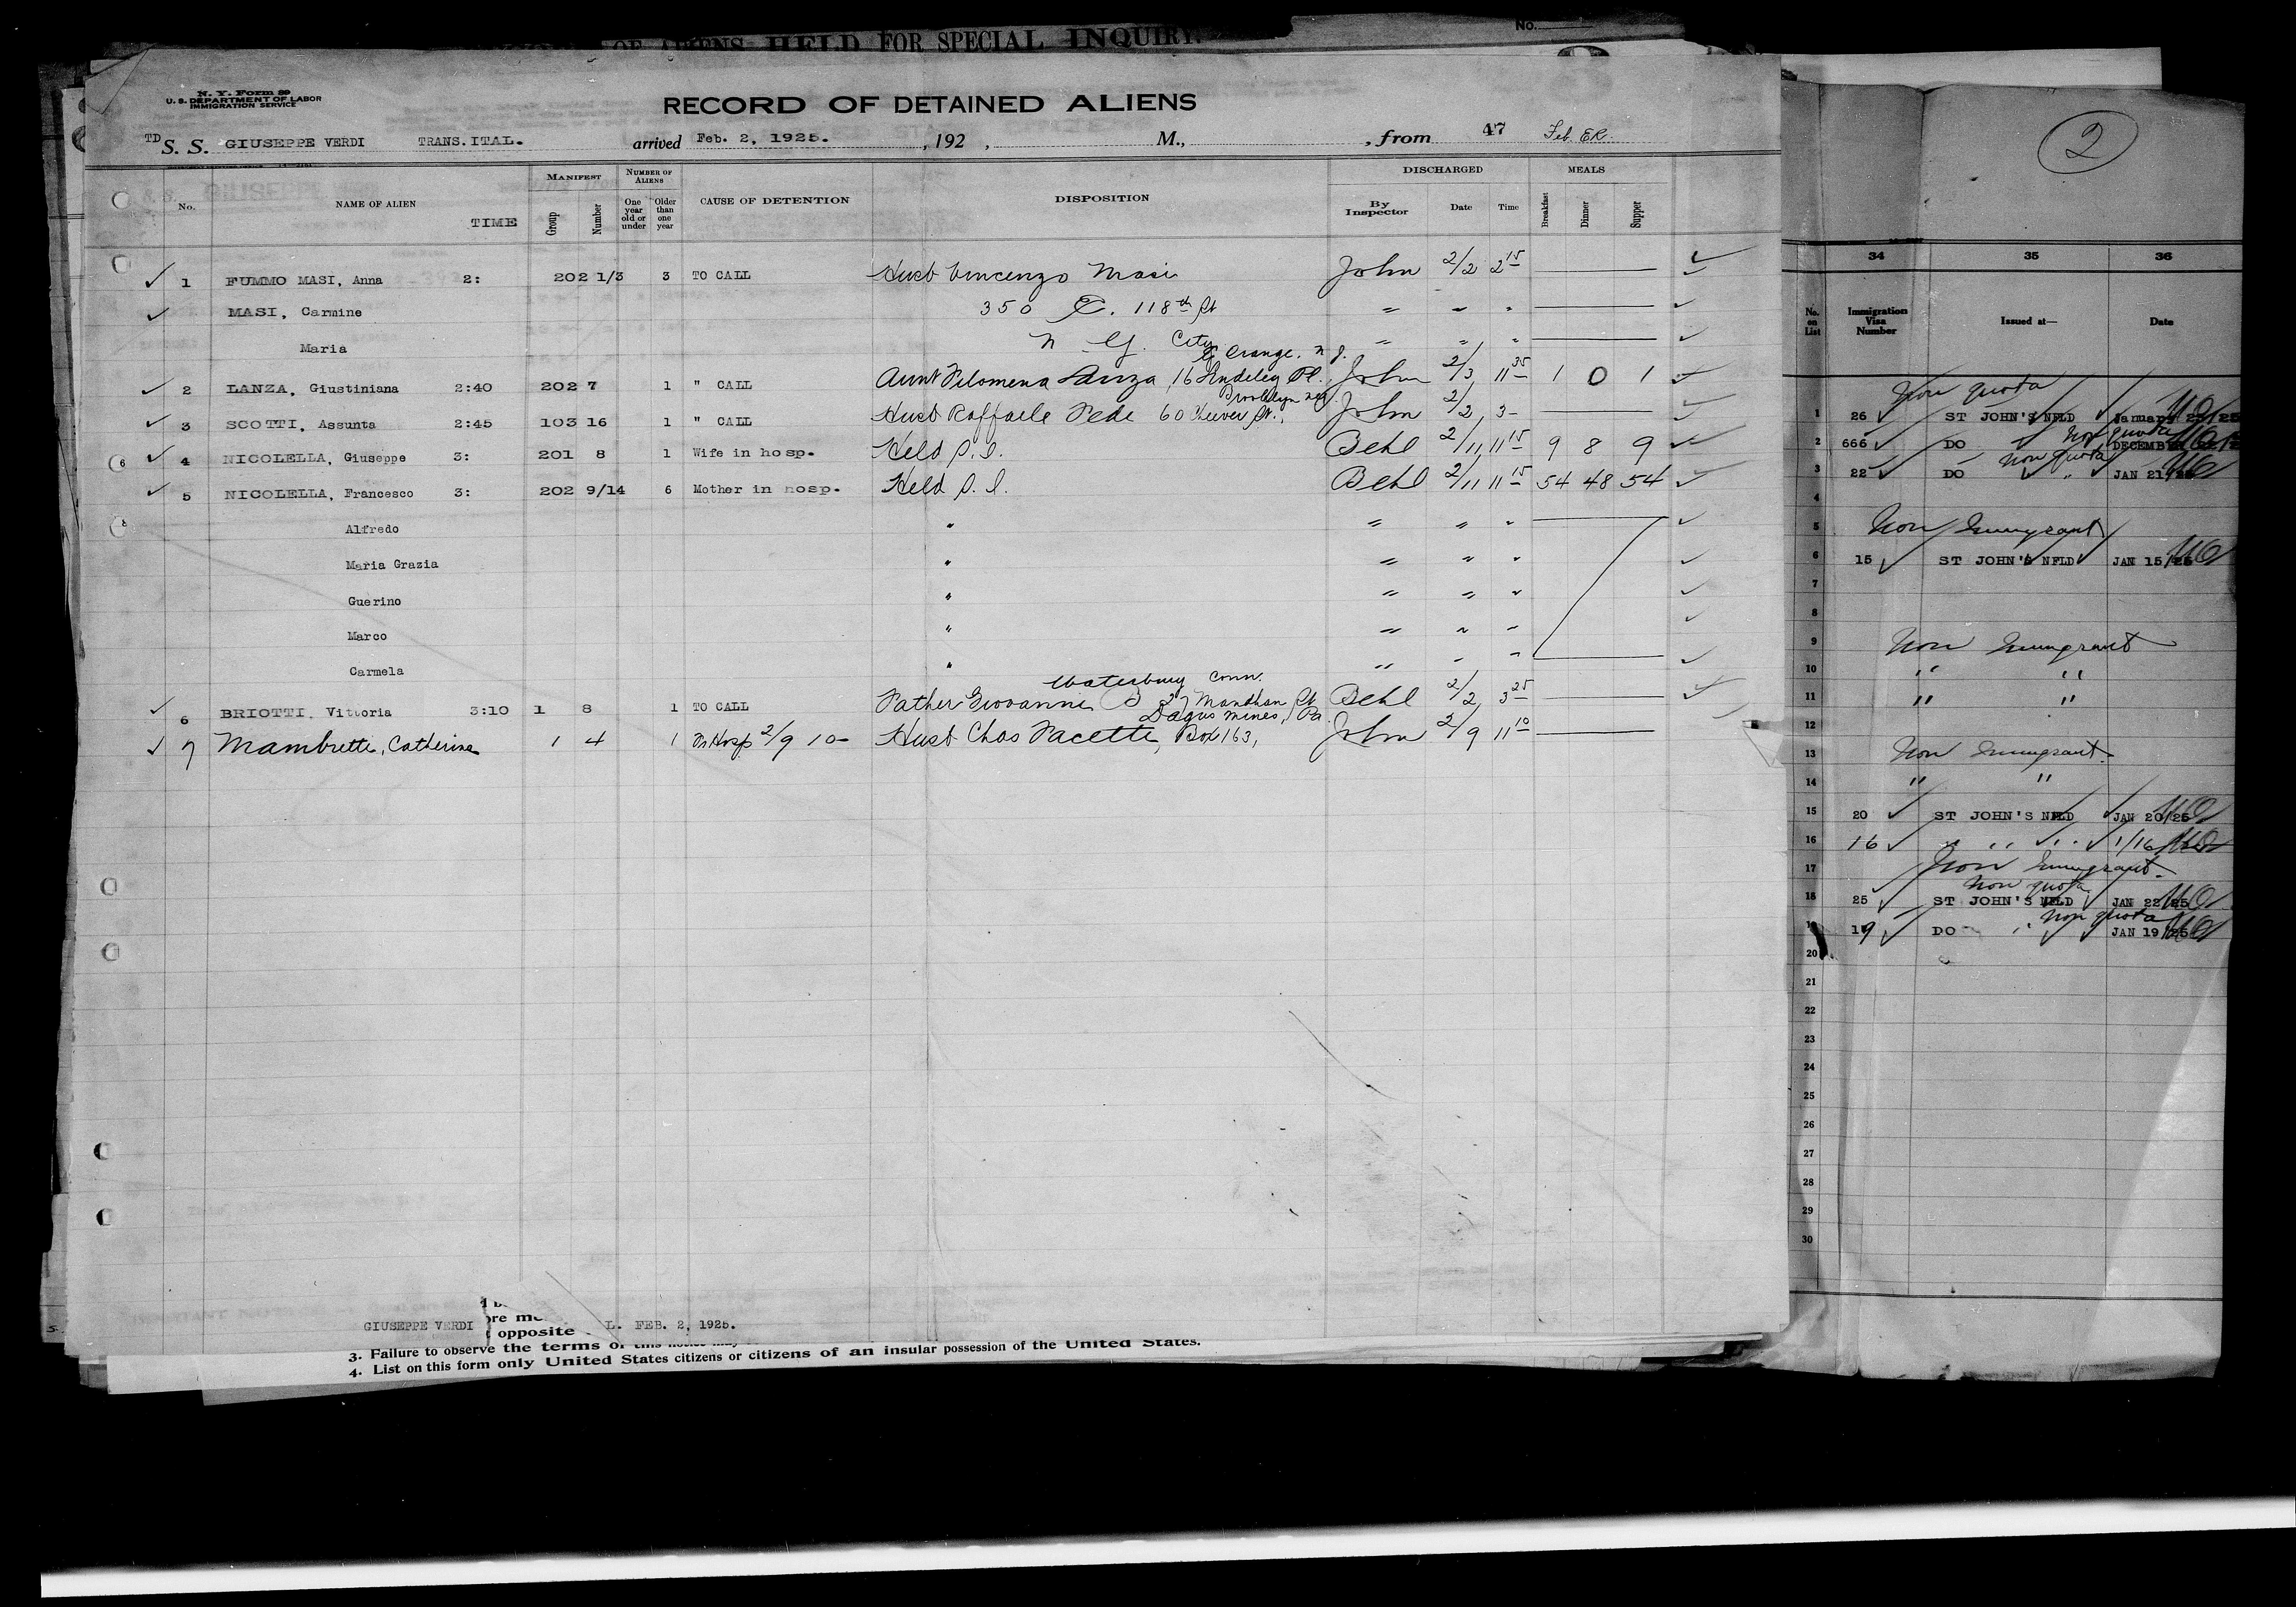 OF ALIENS HELD FOR SPECIAL INQUIRY.
No.
N. Y. Form 89
U. S. DEPARTMENT OF LABOR
IMMIGRATION SERVICE
RECORD OF DETAINED ALIENS
TD S. S. GIUSEPPE VERDI TRANS. ITAL. arrived Feb. 2, 1925. , 192 , M., , from 47 Feb. ER.
No. NAME OF ALIEN TIME MANIFEST Group Number NUMBER OF ALIENS One year old or under Older than one year CAUSE OF DETENTION DISPOSITION DISCHARGED By Inspector Date Time MEALS Breakfast Dinner Supper
1 FUMMO MASI, Anna 2: 202 1/3 3 TO CALL Husb Vincenzo Masi John 2/2 2 15
MASI, Carmine 350 E. 118th St " " "
Maria N. Y. City " " "
E Orange. N J.
2 LANZA, Giustiniana 2:40 202 7 1 " CALL Aunt Filomena Lanza, 16 Pl. John 2/3 11 35 1 0 1
Brooklyn
3 SCOTTI, Assunta 2:45 103 16 1 " CALL Husb Raffaele Fede 60 Cheever St., John 2/2 3-
4 NICOLELLA, Giuseppe 3: 201 8 1 Wife in hosp. Held S. I. Behl 2/11 11 15 9 8 9
5 NICOLELLA, Francesco 3: 202 9/14 6 Mother in hosp. Held S. I. Behl 2/11 11 15 54 48 54
Alfredo " " " "
Maria Grazia " " " "
Guerino " " " "
Marco " " " "
Carmela " " " "
Waterbury Conn.
6 BRIOTTI, Vittoria 3:10 1 8 1 TO CALL Father Giovanni B 27 St Behl 2/2 3 25
Dagus Mines, Pa.
7 Mambrette, Catherine 1 4 1 Fr Hosp 2/9 10- Husb Chas Facette, Box 163, John 2/9 11 10
GIUSEPPE VERDI L. FEB. 2, 1925.
ore
opposite
3. Failure to observe the terms of this notice may
4. List on this form only United States citizens or citizens of an insular possession of the United States.
2
34 35 36
No. on List Immigration Visa Number Issued at— Date
Non quota
1 26 ST JOHN'S NFLD January 23/25
Non quota
2 666 DO DECEMBER
Non quota
3 22 DO " JAN 21/25
4
5 Non Immigrant
6 15 ST JOHN'S NFLD JAN 15/25
7
8
9 Non Immigrant
10 " "
11 " "
12
13 Non Immigrant
14 " "
15 20 ST JOHN'S NFLD JAN 20/25
16 16 " " " 1/16
17 Non Immigrant
Non quota
18 25 ST JOHN'S NFLD JAN 22/25
Non quota
19 19 DO " JAN 19/25
20
21
22
23
24
25
26
27
28
29
30